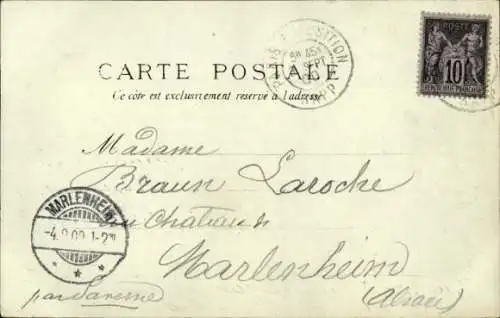 PARIS EXPOSITION
SEPT
R.P.P.
POSTE
10
CARTE POSTALE
Ce côté est exclusivement réservé à l'adresse
Madame
Braun Laroche
au Château de
Marlenheim
(Alsace)
par Saverne
MARLENHEIM
-4.9.00.1-2N